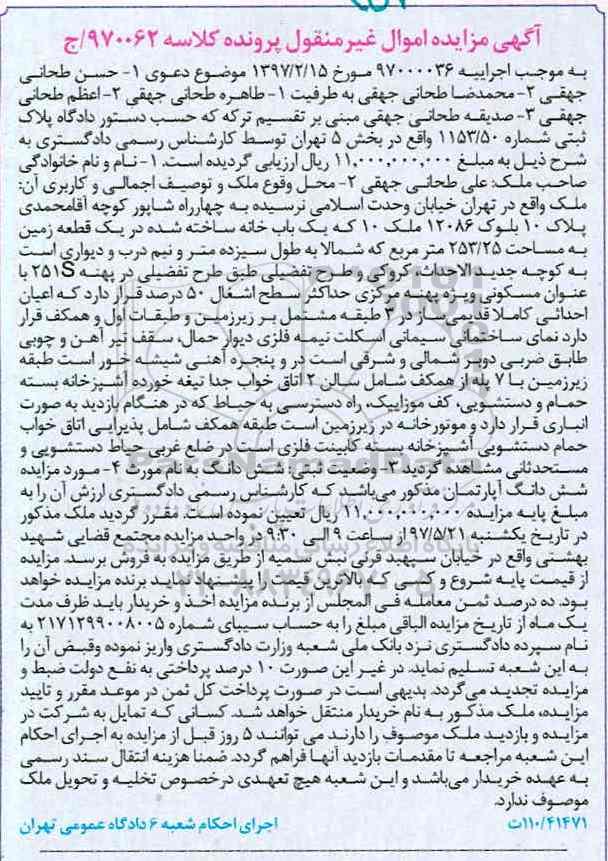 آگهی مزایده اموال غیرمنقول پرونده کلاسه ۹۷۰۰۶۲/ج
به موجب اجراییه ۹۷۰۰۰۰۳۶ مورخ ۱۳۹۷/۲/۱۵ موضوع دعوی ۱- حسن طحانی
جهقی ۲- محمدرضا طحانی جهقی به طرفیت ۱- طاهره طحانی جهقی ۲- اعظم طحانی
جهقی ۳- صدیقه طحانی جهقی مبنی بر تقسیم ترکه که حسب دستور دادگاه پلاک
ثبتی شماره ۱۱۵۳/۵۰ واقع در بخش ۵ تهران توسط کارشناس رسمی دادگستری به
شرح ذیل به مبلغ ۱۱,۰۰۰,۰۰۰,۰۰۰ ریال ارزیابی گردیده است. ۱- نام و نام خانوادگی
صاحب ملک: علی طحانی جهقی ۲- محل وقوع ملک و توصیف اجمالی و کاربری آن:
ملک واقع در تهران خیابان وحدت اسلامی نرسیده به چهارراه شاپور کوچه آقامحمدی
پلاک ۱۰ بلوک ۱۲۰۸۶ ملک ۱۰ که یک باب خانه ساخته شده در یک قطعه زمین
به مساحت ۲۵۳/۲۵ متر مربع که شمالا به طول سیزده متر و نیم درب و دیواری است
به کوچه جدید الاحداث، کروکی و طرح تفضیلی طبق طرح تفضیلی در پهنه S۲۵۱ با
عنوان مسکونی ویژه پهنه مرکزی حداکثر سطح اشغال ۵۰ درصد قرار دارد که اعیان
احداثی کاملا قدیمی ساز در ۳ طبقه مشتمل بر زیرزمین و طبقات اول و همکف قرار
دارد نمای ساختمانی سیمانی اسکلت نیمه فلزی دیوار حمال، سقف تیر آهن و چوبی
طابق ضربی دوبر شمالی و شرقی است در و پنجره آهنی شیشه خور است طبقه
زیرزمین با ۷ پله از همکف شامل سالن ۲ اتاق خواب جدا تیغه خورده آشپزخانه بسته
حمام و دستشویی، کف موزاییک، راه دسترسی به حیاط که در هنگام بازدید به صورت
انباری قرار دارد و موتورخانه در زیرزمین است طبقه همکف شامل پذیرایی اتاق خواب
حمام دستشویی آشپزخانه بسته کابینت فلزی است در ضلع غربی حیاط دستشویی و
مستحدثاتی مشاهده گردید ۳- وضعیت ثبتی: شش دانگ به نام مورث ۴- مورد مزایده
شش دانگ آپارتمان مذکور می‌باشد که کارشناس رسمی دادگستری ارزش آن را به
مبلغ پایه مزایده ۱۱,۰۰۰,۰۰۰,۰۰۰ ریال تعیین نموده است. مقرر گردید ملک مذکور
در تاریخ یکشنبه ۹۷/۵/۲۱ از ساعت ۹ الی ۹:۳۰ در واحد مزایده مجتمع قضایی شهید
بهشتی واقع در خیابان سپهبد قرنی نبش سمیه از طریق مزایده به فروش برسد. مزایده
از قیمت پایه شروع و کسی که بالاترین قیمت را پیشنهاد نماید برنده مزایده خواهد
بود. ده درصد ثمن معامله فی المجلس از برنده مزایده اخذ و خریدار باید ظرف مدت
یک ماه از تاریخ مزایده الباقی مبلغ را به حساب سیبای شماره ۲۱۷۱۲۹۹۰۰۸۰۰۵ به
نام سپرده دادگستری نزد بانک ملی شعبه وزارت دادگستری واریز نموده وقبض آن را
به این شعبه تسلیم نماید. در غیر این صورت ۱۰ درصد پرداختی به نفع دولت ضبط و
مزایده تجدید می‌گردد. بدیهی است در صورت پرداخت کل ثمن در موعد مقرر و تایید
مزایده، ملک مذکور به نام خریدار منتقل خواهد شد. کسانی که تمایل به شرکت در
مزایده و بازدید ملک موصوف را دارند می توانند ۵ روز قبل از مزایده به اجرای احکام
این شعبه مراجعه تا مقدمات بازدید آنها فراهم گردد. ضمنا هزینه انتقال سند رسمی
به عهده خریدار می‌باشد و این شعبه هیچ تعهدی درخصوص تخلیه و تحویل ملک
موصوف ندارد.
۱۱۰/۴۱۴۷۱ت اجرای احکام شعبه ۶ دادگاه عمومی تهران